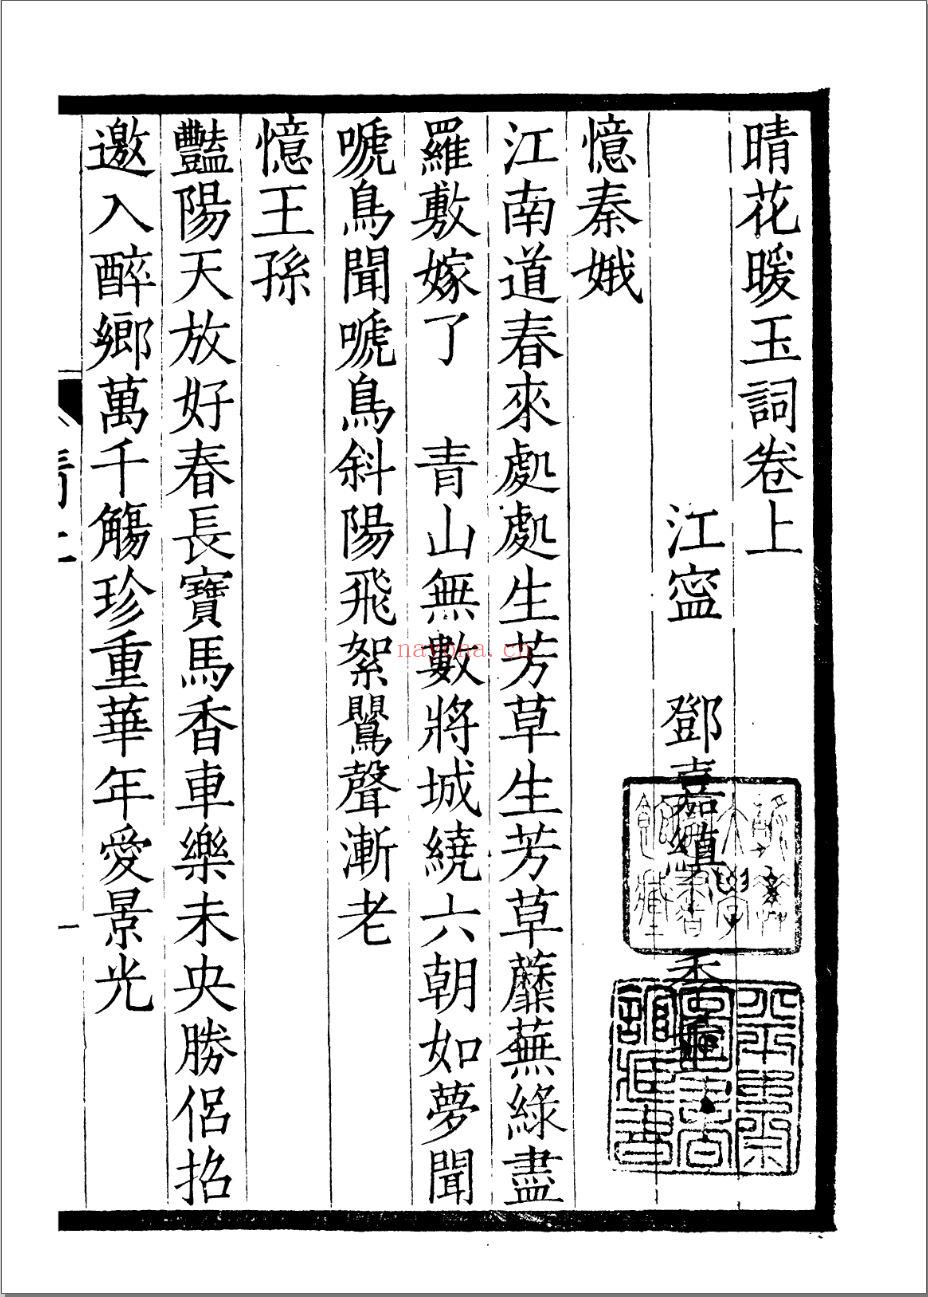 晴花暖玉詞卷上
江寍　鄧嘉縝　季垂
憶秦娥
江南道春來處處生芳草生芳草蘼蕪綠盡
羅敷嫁了　青山無數將城繞六朝如夢聞
嗁鳥聞嗁鳥斜陽飛絮鸎聲漸老
憶王孫
豔陽天放好春長寶馬香車樂未央勝侶招
邀入醉鄉萬千觴珍重華年愛景光
一
nayona.cn